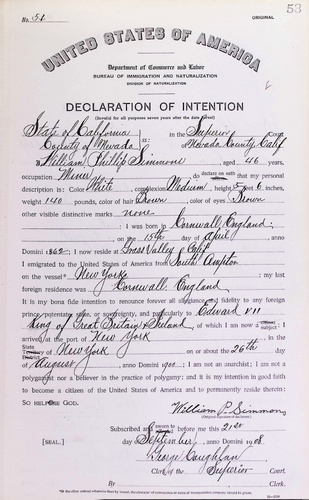 No. 51.
ORIGINAL
53
UNITED STATES OF AMERICA
Department of Commerce and Labor
BUREAU OF IMMIGRATION AND NATURALIZATION
DIVISION OF NATURALIZATION
DECLARATION OF INTENTION
(Invalid for all purposes seven years after the date hereof)
State of California
County of Nevada ss: In the Superior Court
Nevada County Calif
I, William Phillip Simmons, aged 46 years,
occupation Miner, do declare on oath that my personal
description is: Color White, complexion Medium, height 5 feet 6 inches,
weight 140 pounds, color of hair Brown, color of eyes Brown
other visible distinctive marks none
I was born in Cornwall, England
on the 15th day of April, anno
Domini 1862; I now reside at Grass Valley Calif
I emigrated to the United States of America from South
on the vessel New York; my last
foreign residence was Cornwall England
It is my bona fide intention to renounce forever all allegiance and fidelity to any foreign
prince, potentate, state, or sovereignty, and particularly to Edward VII
King of Great Britain & Ireland, of which I am now a subject; I
arrived at the port of New York, in the
State Territory of New York on or about the 26th day
of August, anno Domini 1900; I am not an anarchist; I am not a
polygamist nor a believer in the practice of polygamy; and it is my intention in good faith
to become a citizen of the United States of America and to permanently reside therein:
SO HELP ME GOD.
William P. Simmons
(Original signature of declarant)
Subscribed and sworn to before me this 21st
[SEAL.] day of September, anno Domini 1908.
George
Clerk of the Superior Court.
By , Clerk.